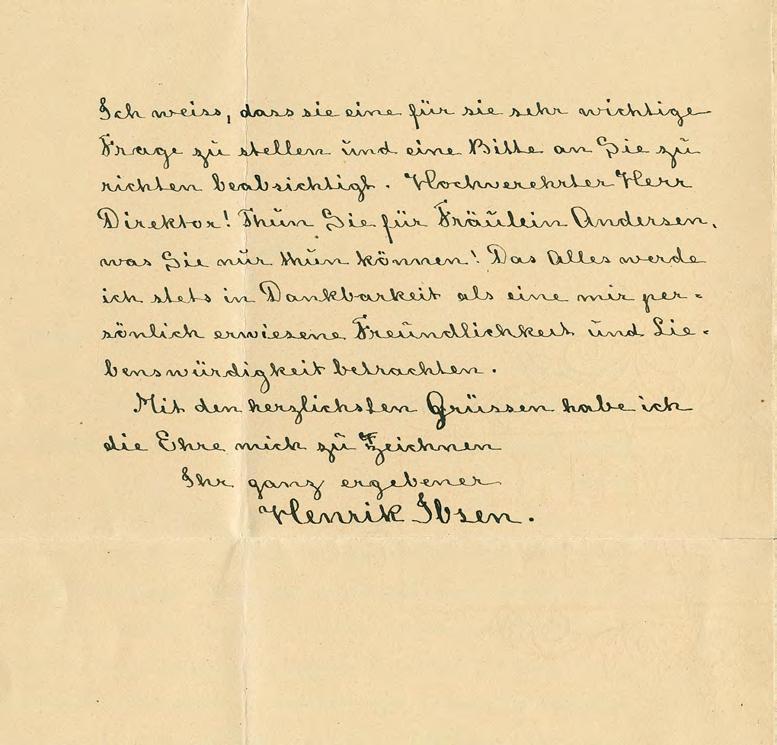 Ich weiss, dass sie eine für sie sehr wichtige
Frage zu stellen und eine Bitte an Sie zu
richten beabsichtigt. Hochverehrter Herr
Direktor! Thun Sie für Fräulein Andersen,
was Sie nur thun können! Das Alles werde
ich stets in Dankbarkeit als eine mir per=
sönlich erwiesene Freundlichkeit und Lie-
benswürdigkeit betrachten.
Mit den herzlichsten Grüssen habe ich
die Ehre mich zu zeichnen
Ihr ganz ergebener
Henrik Ibsen.